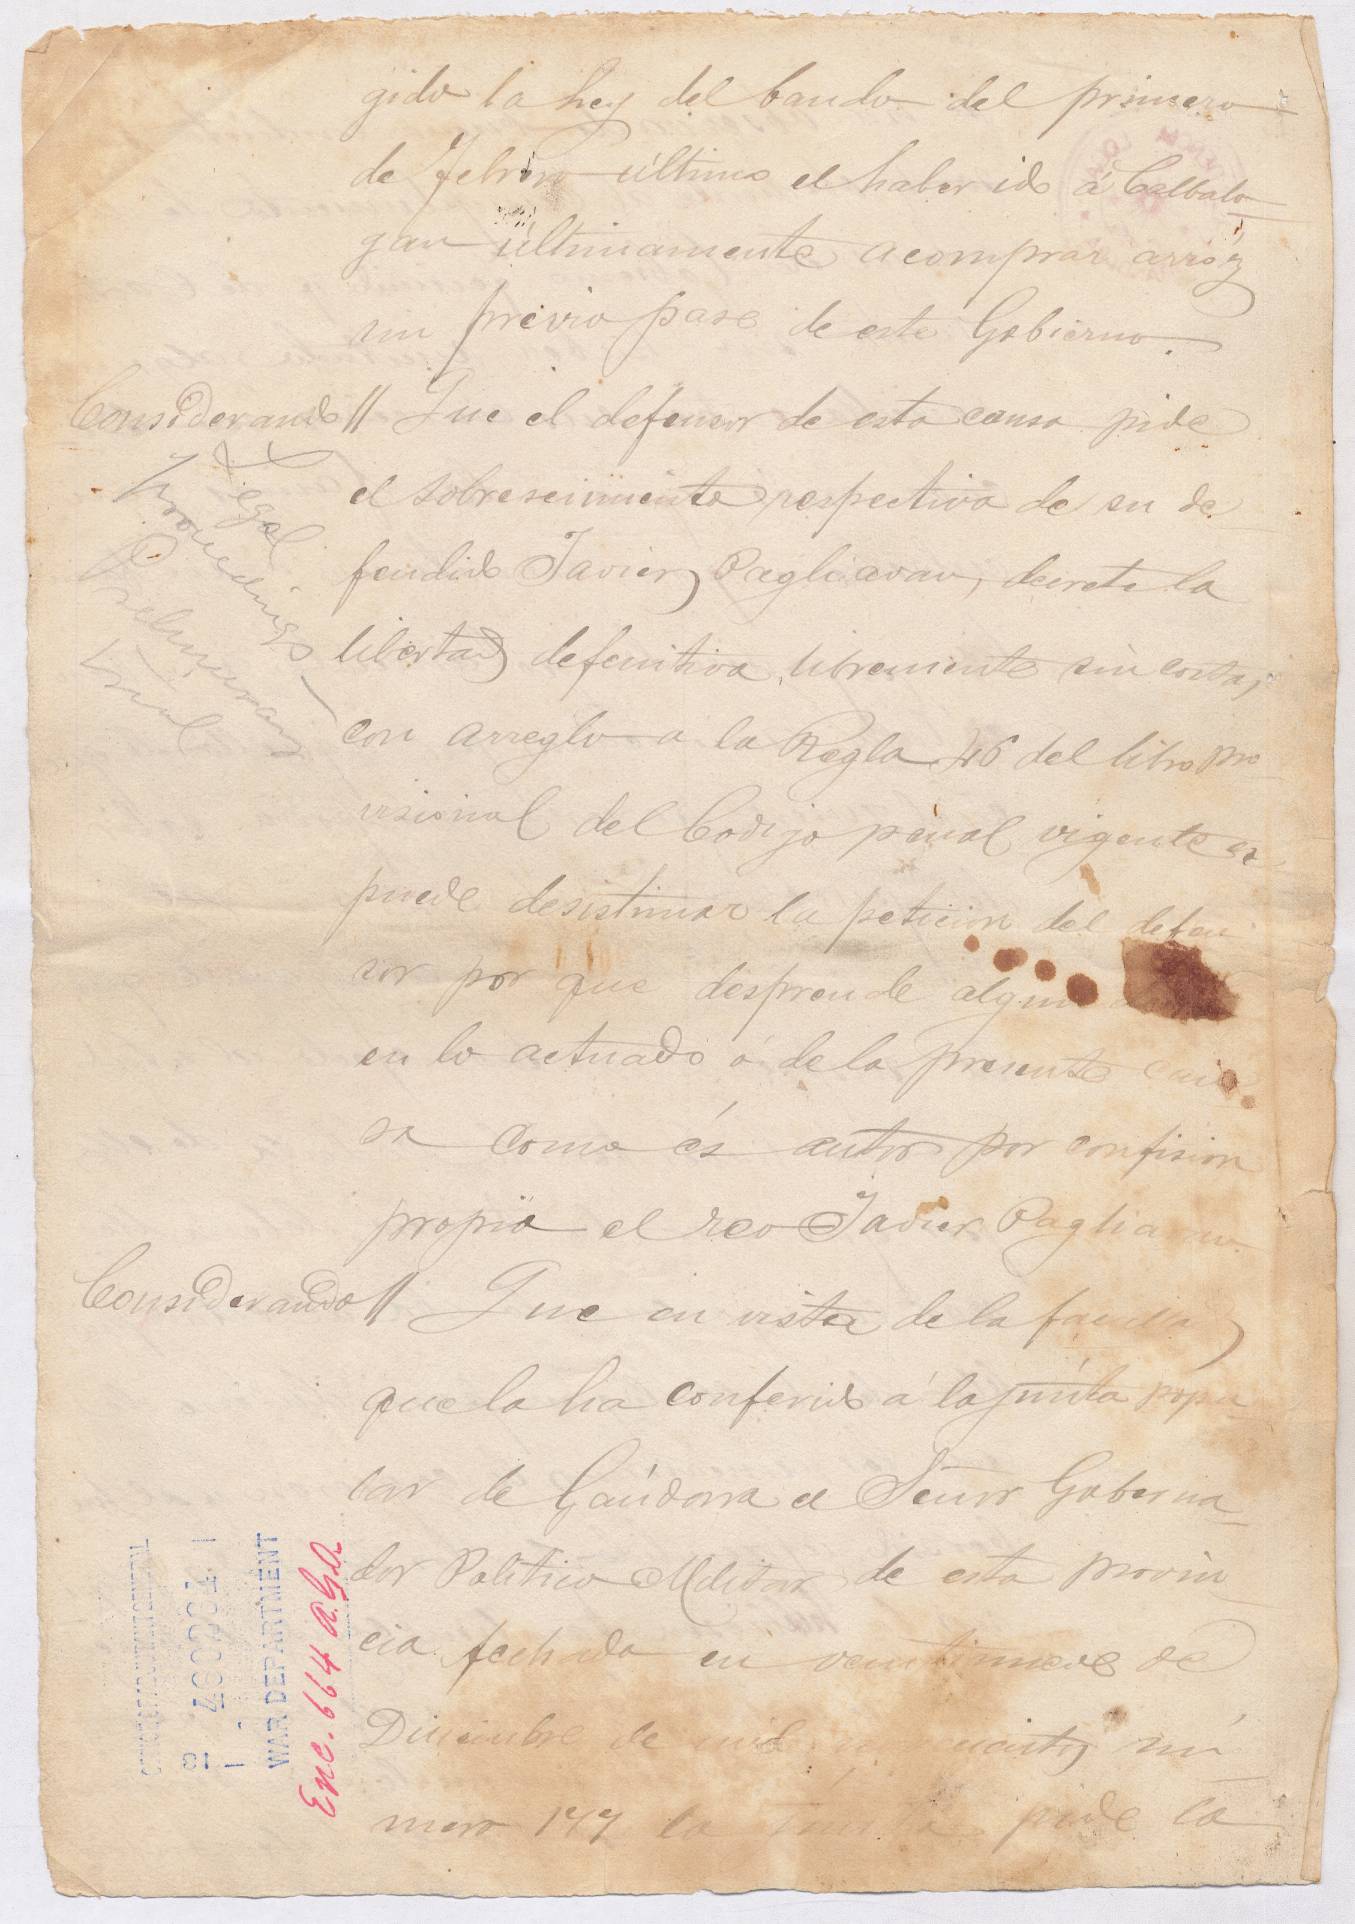 gido la Ley del bando del primero
de Febrero último el haber ido á Calbalo-
gan últimamente acomprar arróz
sin previo pase de este Gobierno.
Considerando // Que el defensor de esta causa pide
el sobreseimiento respectivo de su de-
fendido Javier Pagliawan, decrete la
libertad defenitiva, libremente sin costas,
con arreglo a la Regla 46 del libro pro-
visional del Codigo penal vigente
puede desistimar la peticion del defen
sor por que desprende
en lo actuado ó de la presente cau
sa como és autor por confision
propia el reo Javier
Considerando // Que en vista de la
que la ha conferido á la junta popu
lar de Gándara el Señor Goberna-
dor Politico Militar de esta provin
cia fechada en veintinueve de
Diciembre de mil nú
mero 177 la Junta pide la
Legal
Proceedings -
Preliminary
trial
WAR DEPARTMENT
Enc. 664 A.G.O.